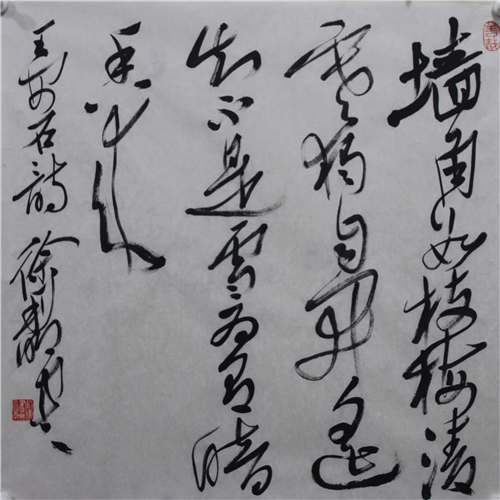 墙角数枝梅凌
寒独自开遥
知不是雪为有暗
香来
王安石诗 徐